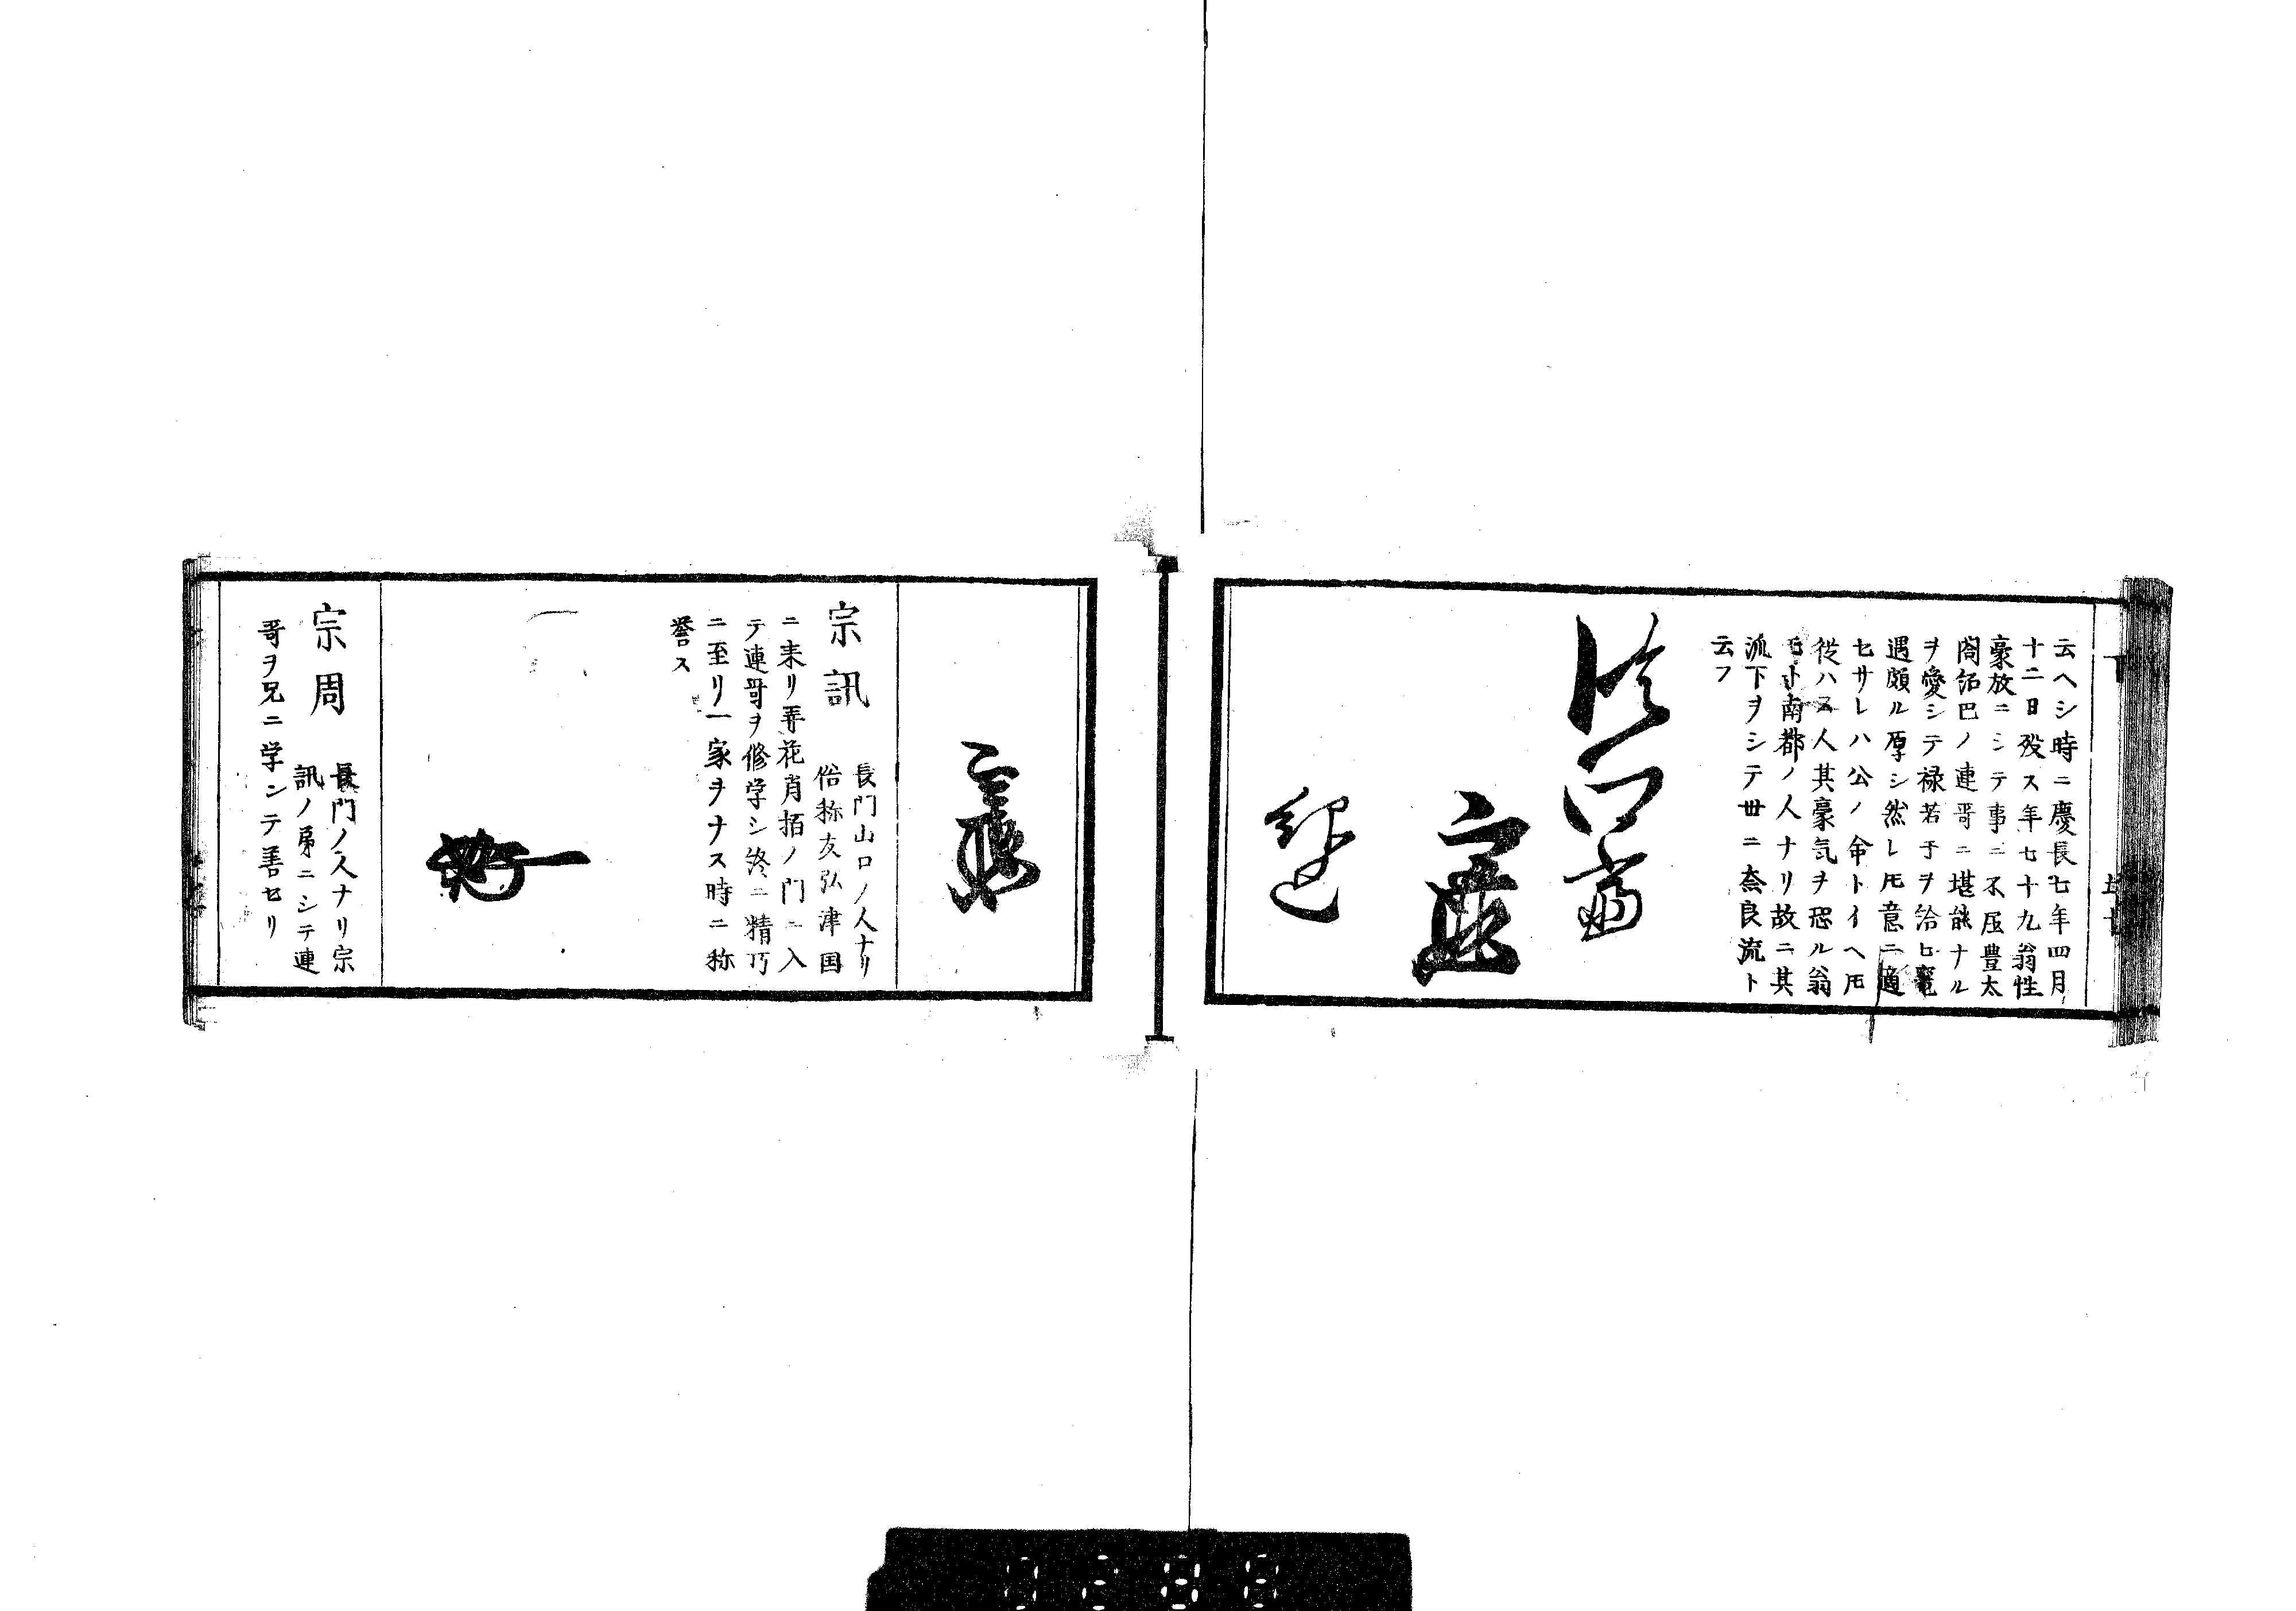 云ヘシ時ニ慶長七年四月
十二日歿ス年七十九翁性
豪放ニシテ事ニ不屈豊太
閤紹巴ノ連哥ニ堪能ナル
ヲ愛シテ禄若干ヲ給ヒ寵
遇頗ル厚シ然レ𪜈意ニ適
セサレハ公ノ命トイヘ𪜈
従ハス人其豪気ヲ恐ル翁
モト南都ノ人ナリ故ニ其
流下ヲシテ世ニ奈良流ト
云フ
紹巴
宗訊
長門山口ノ人ナリ
俗称友弘津国
ニ来リ弄花肖栢ノ門ニ入
テ連哥ヲ修学シ終ニ精巧
ニ至リ一家ヲナス時ニ称
誉ス
宗周
長門ノ人ナリ宗
訊ノ弟ニシテ連
哥ヲ兄ニ学ンテ善セリ